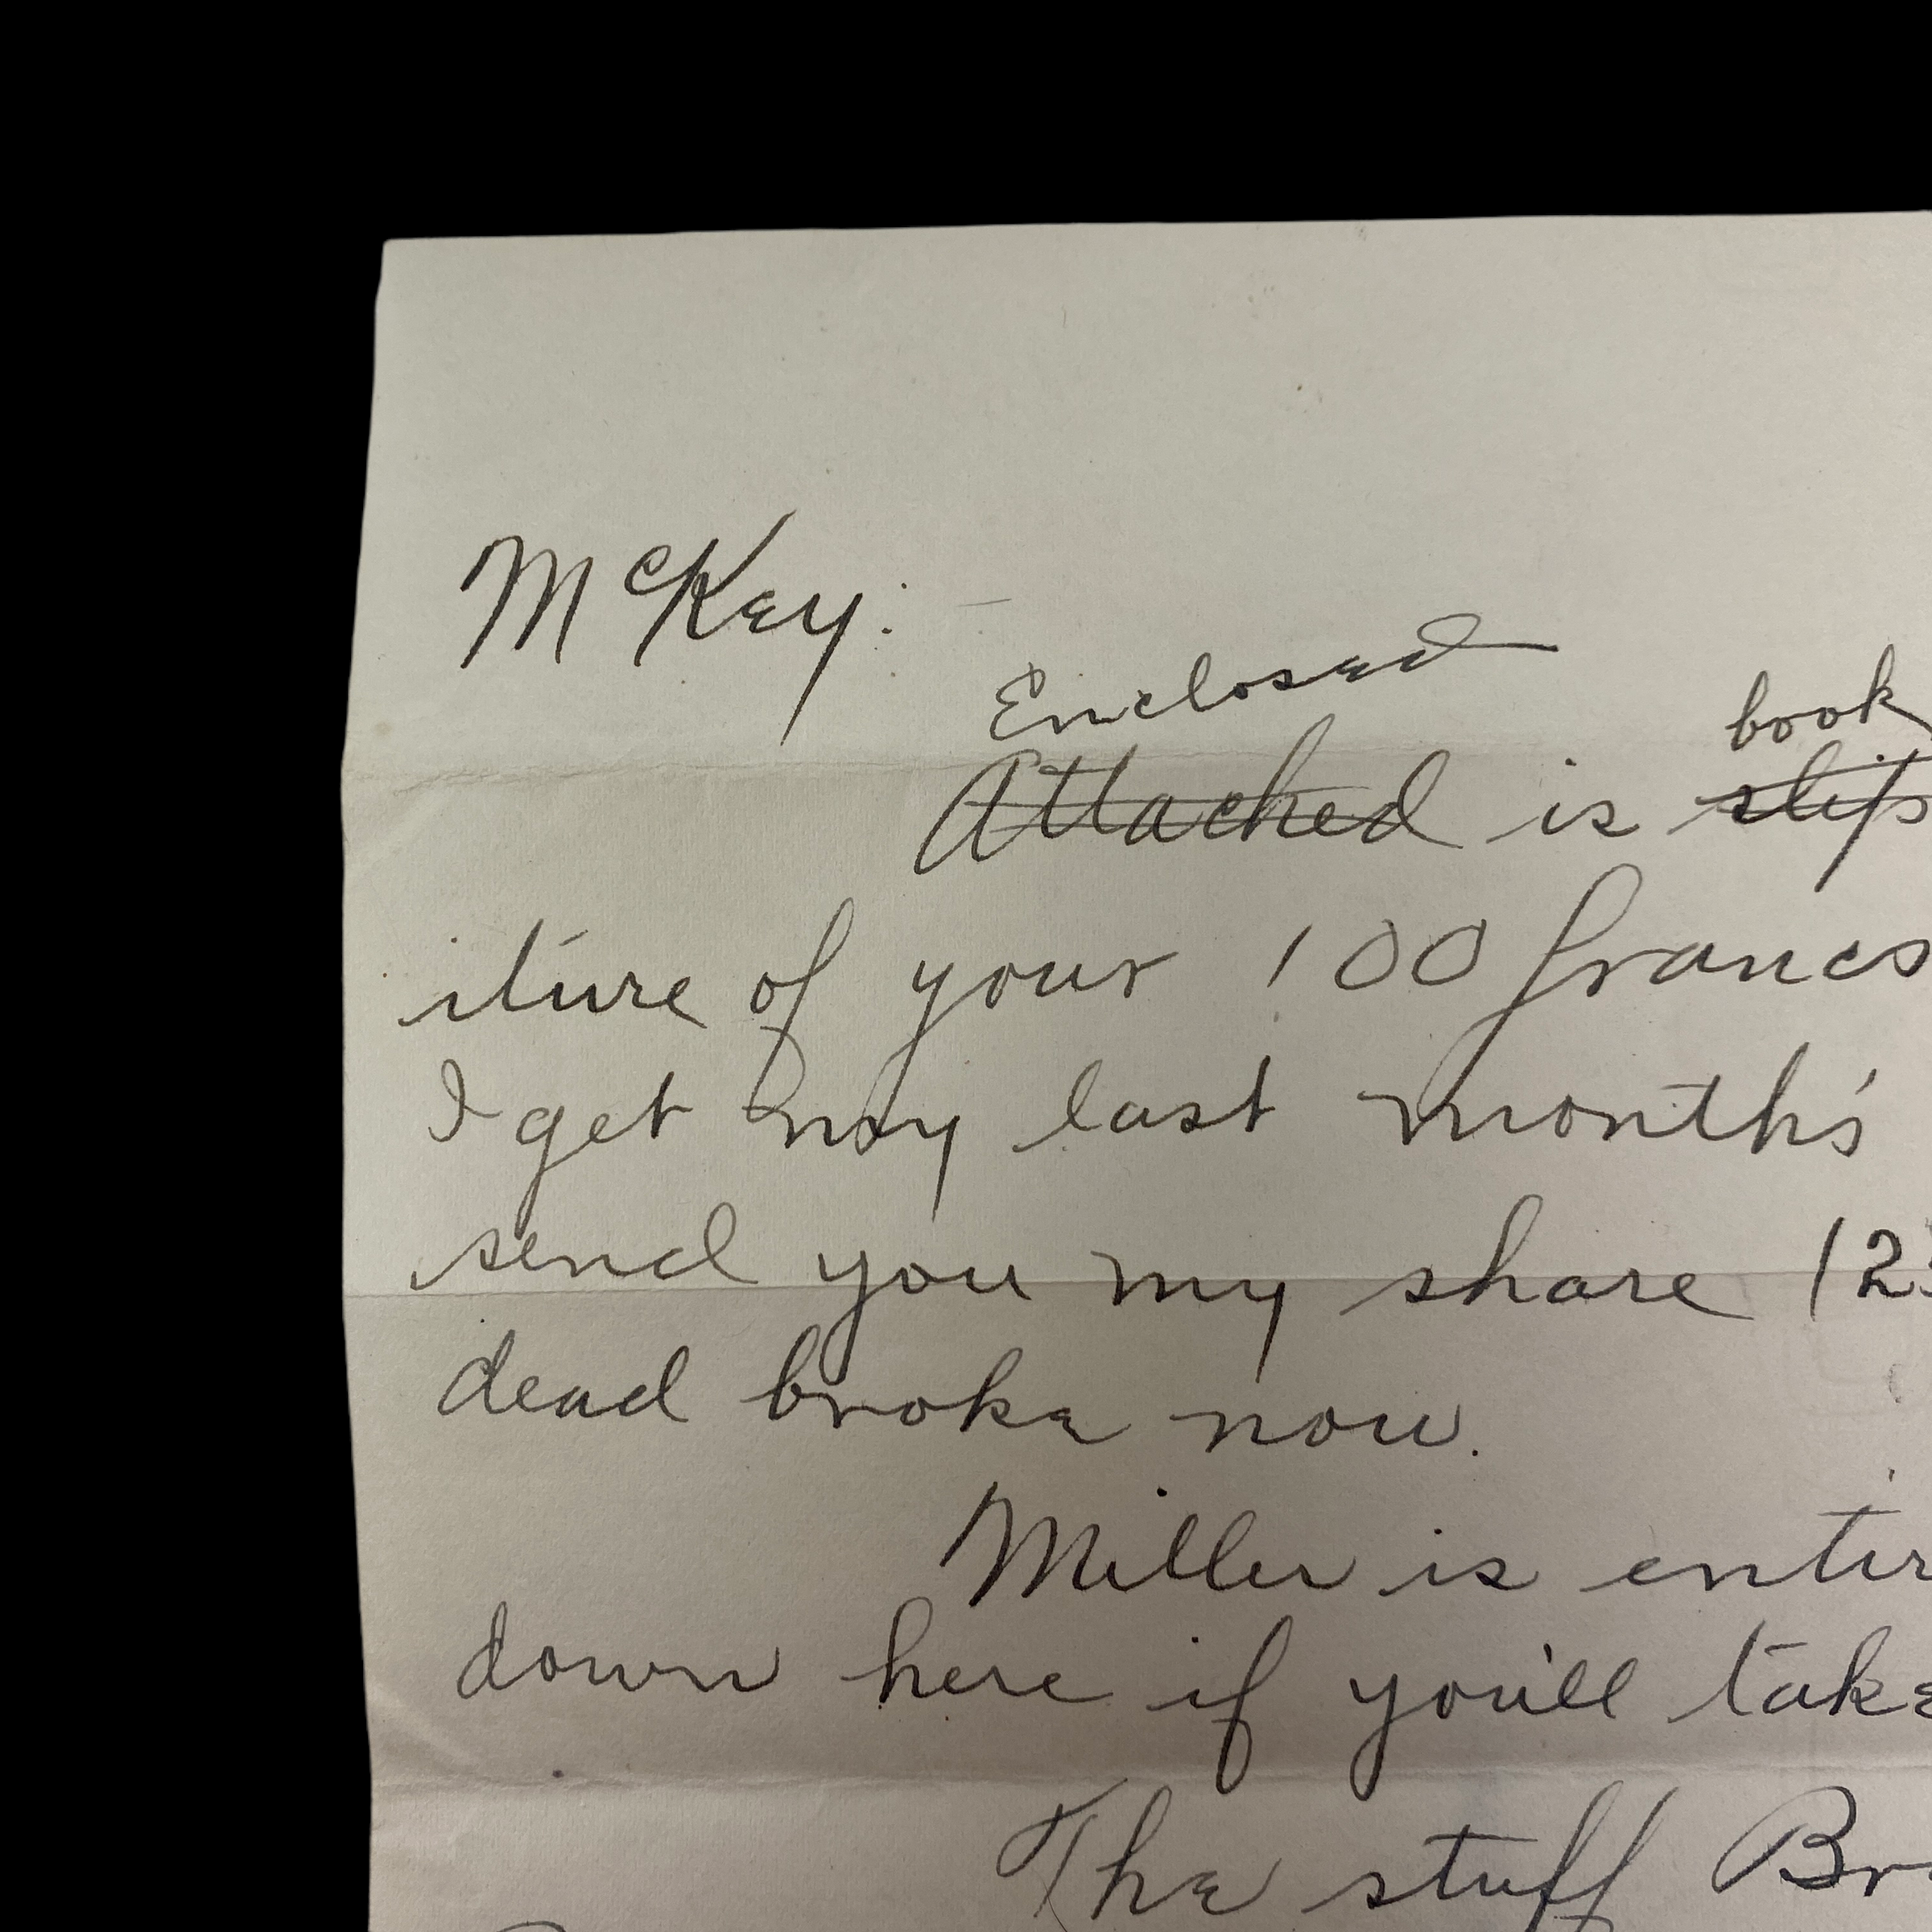 McKey:
Enclosed book
Attached is slip
iture of your 100 francs
I get my last month's
send you my share (25
dead broke now.
Miller is entir
down here if you'll take
The stuff Br